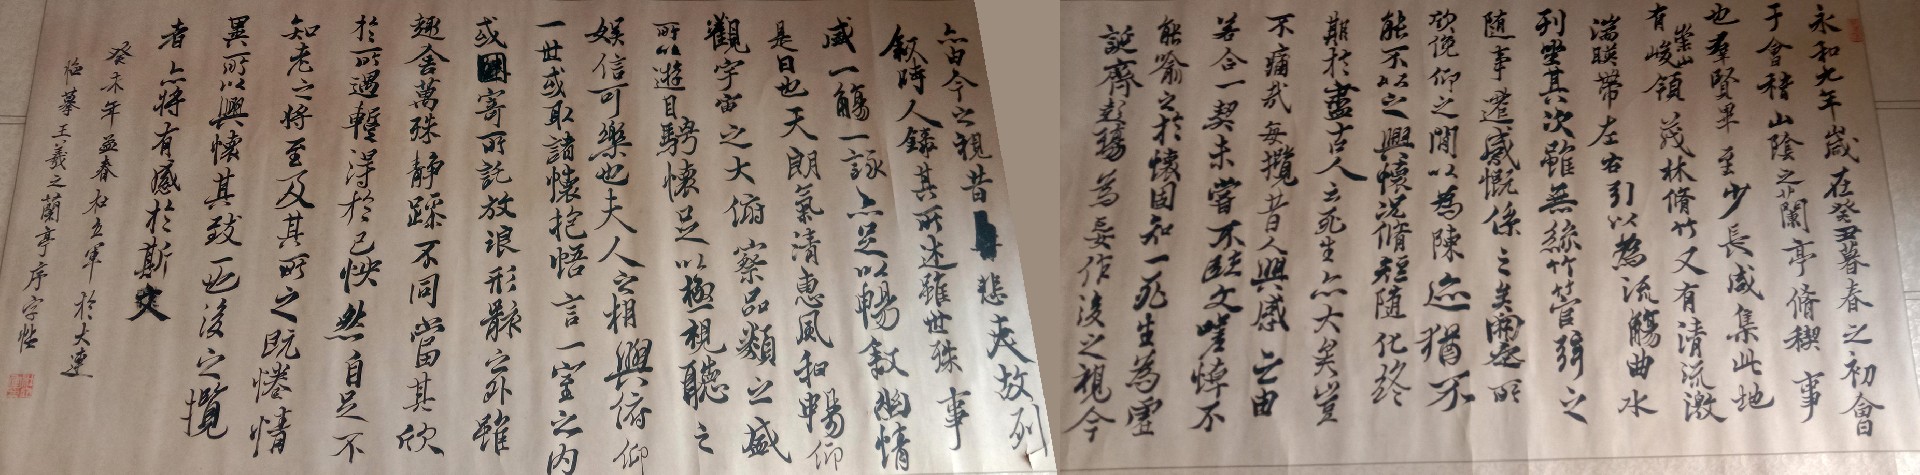 永和九年歲在癸丑暮春之初會
于會稽山陰之蘭亭脩稧事
也羣賢畢至少長咸集此地
有崇山峻領茂林脩竹又有清流激
湍暎帶左右引以為流觴曲水
列坐其次雖無絲竹管弦之
隨事遷感慨係之矣向之所
欣俛仰之閒以為陳迹猶不
能不以之興懷況脩短隨化終
期於盡古人云死生亦大矣豈
不痛哉每攬昔人興感之由
若合一契未嘗不臨文嗟悼不
能喻之於懷固知一死生為虛
誕齊彭殤為妄作後之視今
亦由今之視昔悲夫故列
敘時人錄其所述雖世殊事
盛一觴一詠亦足以暢敘幽情
是日也天朗氣清惠風和暢仰
觀宇宙之大俯察品類之盛
所以遊目騁懷足以極視聽之
娛信可樂也夫人之相與俯仰
一世或取諸懷抱悟言一室之內
或因寄所託放浪形骸之外雖
趣舍萬殊靜躁不同當其欣
於所遇暫得於己怏然自足不
知老之將至及其所之既惓情
異所以興懷其致一也後之攬
者亦將有感於斯文
癸未年益春立軍於大連
臨摹王羲之蘭亭序字帖